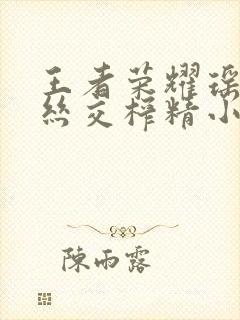 王者荣耀瑶
丝交榨精小
陳雨露